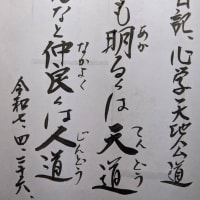 日記、心学天地公道
も明るくは天道
あか
てんどう
なと仲良くは人道
なかよく
じんどう
令和七、四、二十六、